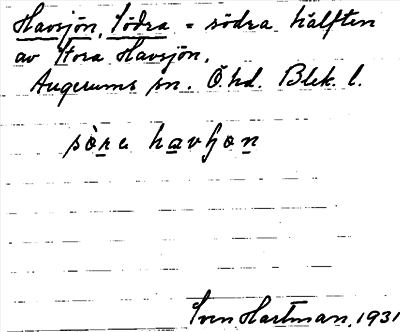 Havsjön, Södra = södra hälften
av Stora Havsjön.
Augerums sn. Ö. hd. Blek. l.
Sven Hartman, 1931